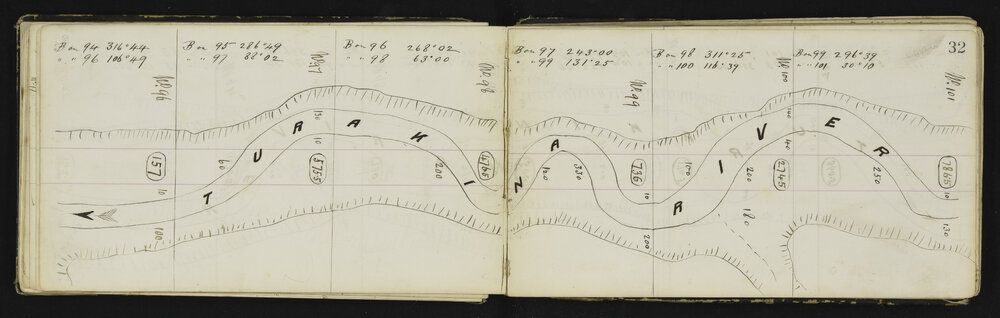 B on 94 316°44
" " 96 106°49
B on 95 286°49
" " 97 88°02
B on 96 268°02
" " 98 63°00
B on 97 243°00
" " 99 131°25
B on 98 311°25
" " 100 116°39
B on 99 296°39
" " 101 30°10
32
No. 96
No. 97
No. 98
No. 99
No. 100
No. 101
157
5755
4765
736
2745
7865
TURAKINA RIVER
10
100
60
130
10
200
120
330
10
200
100
200
180
140
140
250
10
130